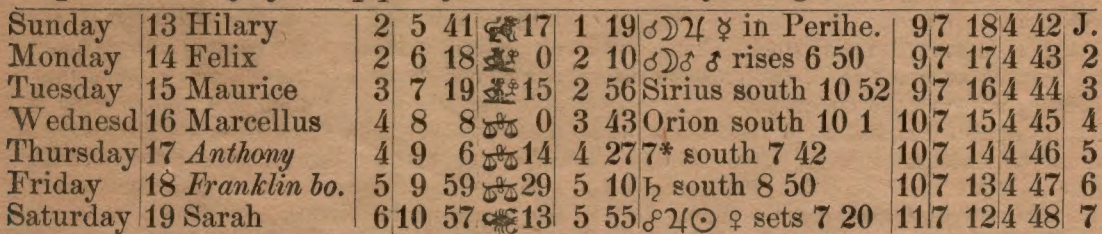 Sunday 13 Hilary 2 5 41 17 1 19 ☌☽♃ ☿ in Perihe. 9 7 18 4 42 J.
Monday 14 Felix 2 6 18 0 2 10 ☌☽♂ ♂ rises 6 50 9 7 17 4 43 2
Tuesday 15 Maurice 3 7 19 15 2 56 Sirius south 10 52 9 7 16 4 44 3
Wednesd 16 Marcellus 4 8 8 0 3 43 Orion south 10 1 10 7 15 4 45 4
Thursday 17 Anthony 4 9 6 14 4 27 7* south 7 42 10 7 14 4 46 5
Friday 18 Franklin bo. 5 9 59 29 5 10 ♄ south 8 50 10 7 13 4 47 6
Saturday 19 Sarah 6 10 57 13 5 55 ☍♃☉ ♀ sets 7 20 11 7 12 4 48 7